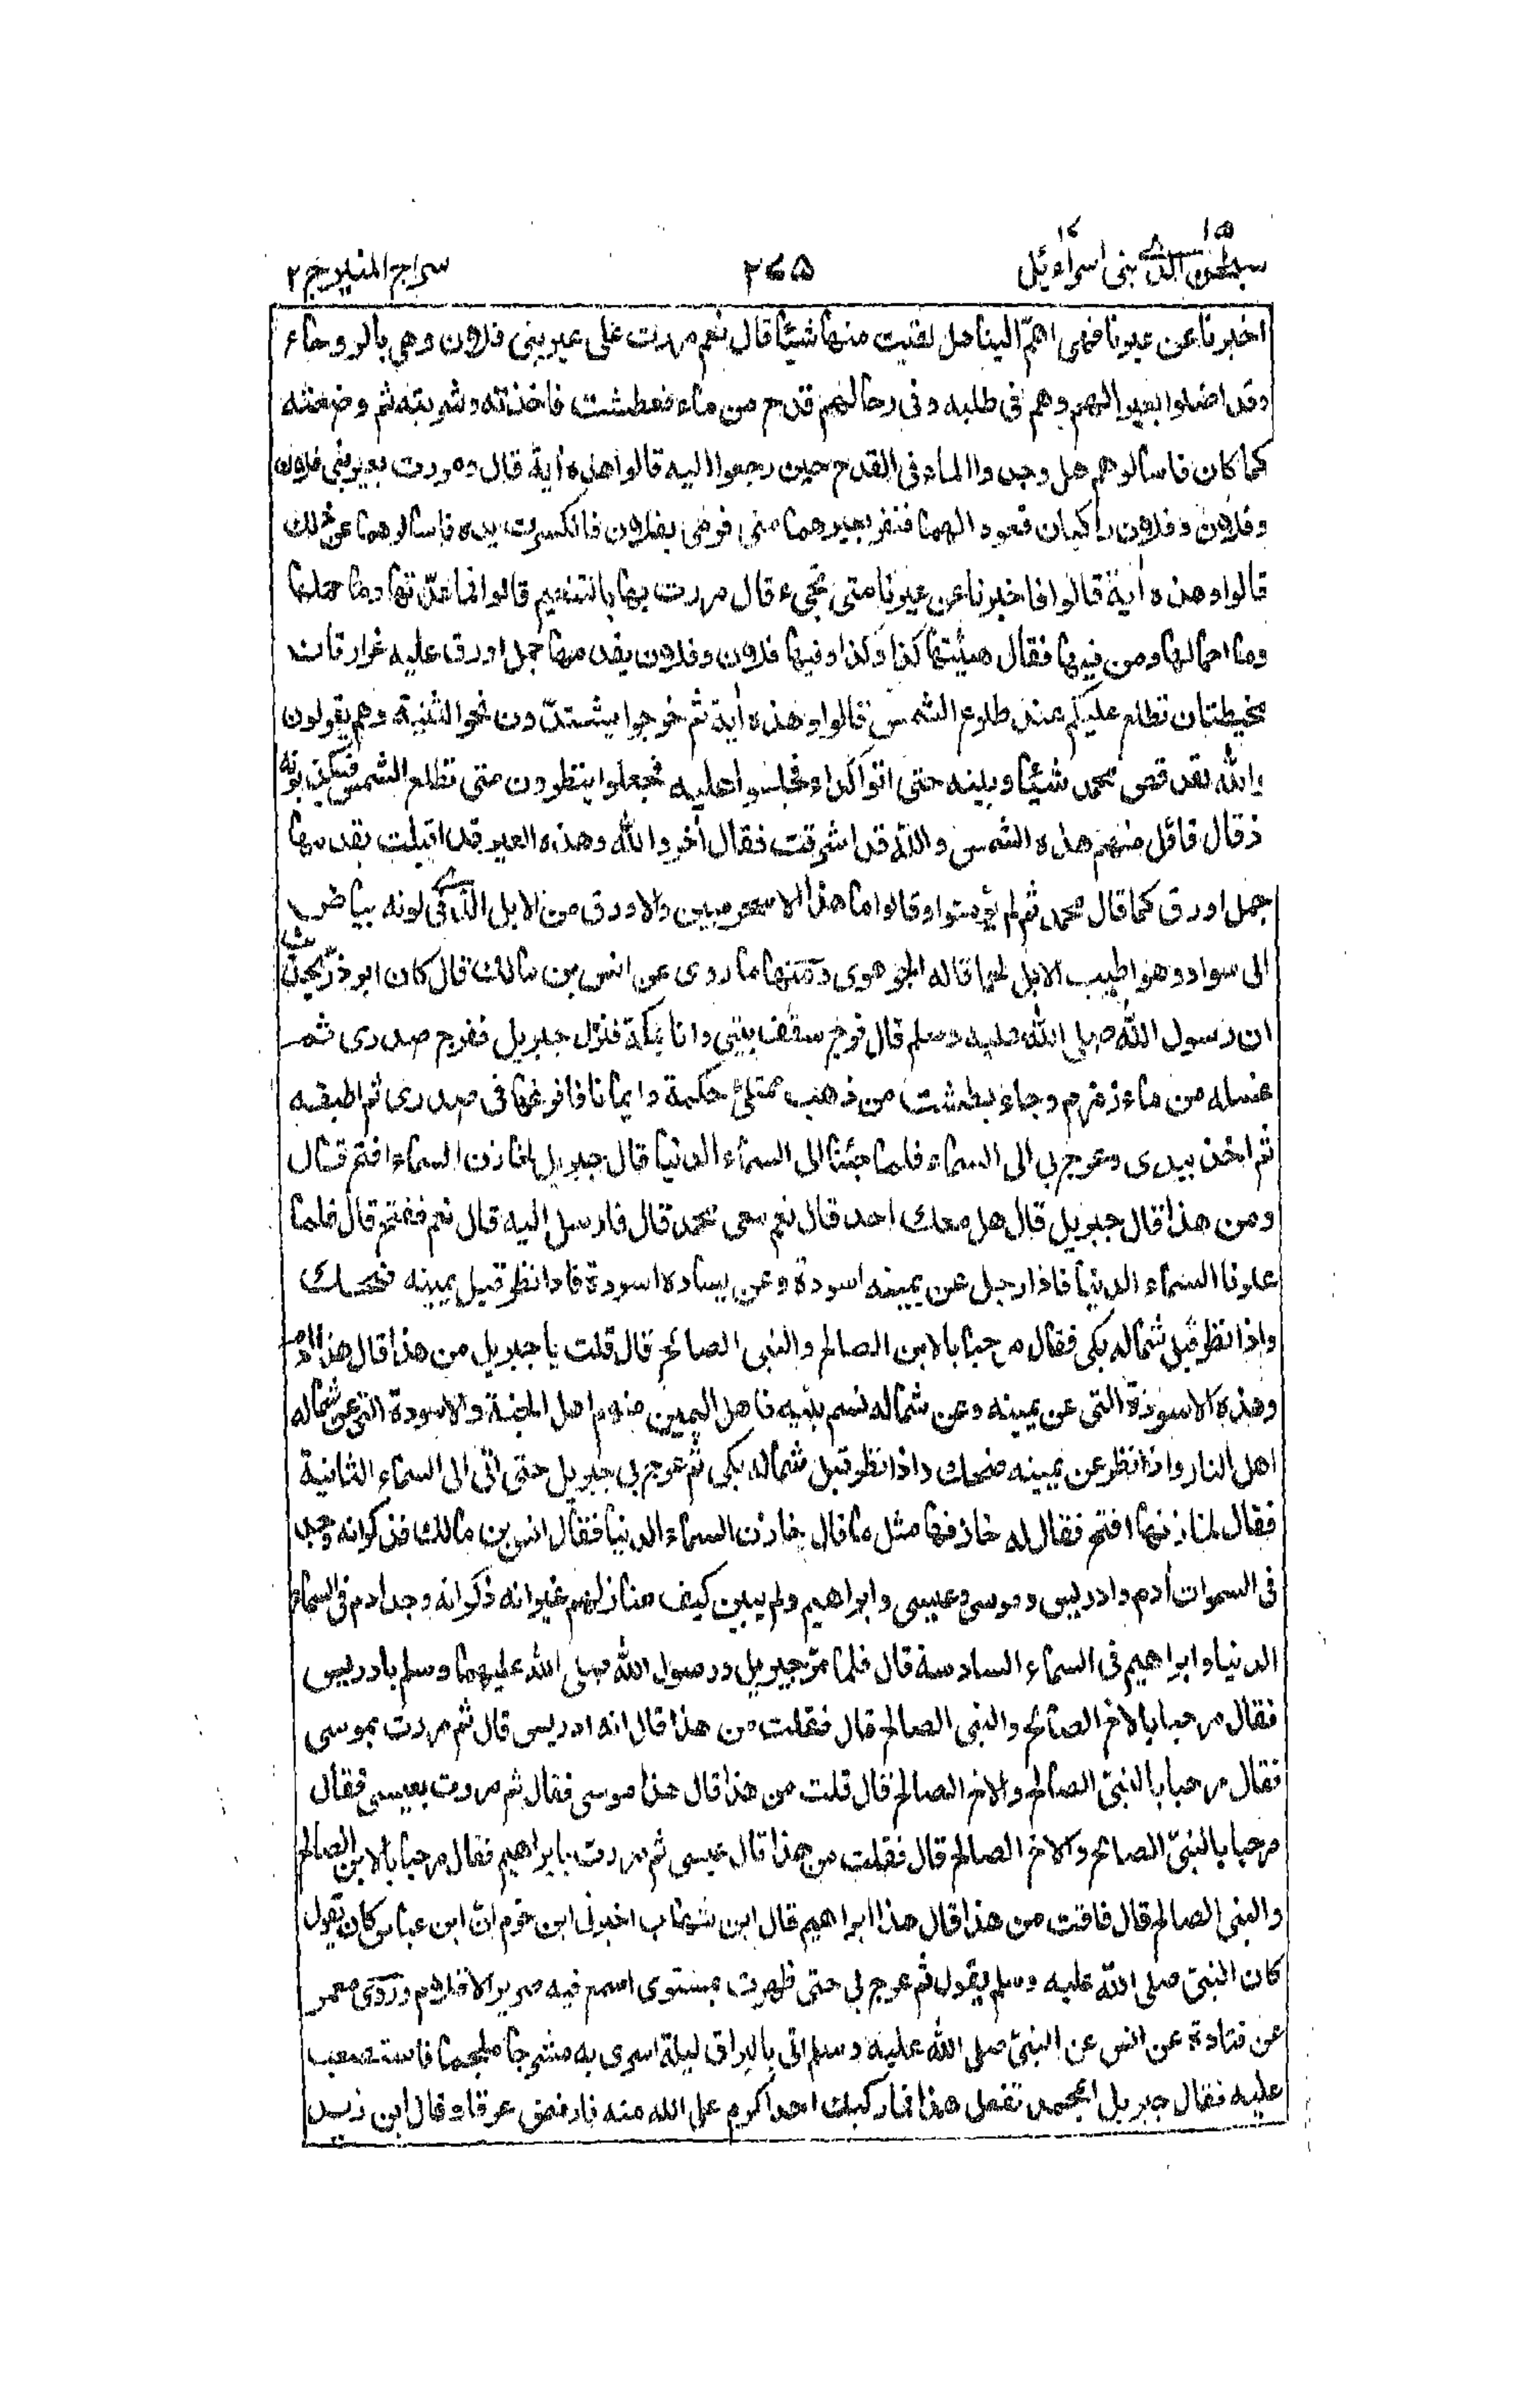 ١٥ ١٧
سبحٰن الذی بنی اسرآءیل ٢٧٥ سراج المنیر ج ٢
اخبرنا عن عیرنا فهی اهمّ الینا هل لقیت منها شیئا قال نعم مررت علی عیر بنی فلان وهی بالروحاء
وقد اضلوا بعیرا لهم وهم فی طلبه وفی رحالهم قدح من ماء فعطشت فاخذته وشربته ثم وضعته
کما کان فاسألوهم هل وجدوا الماء فی القدح حین رجعوا الیه قالوا هذه أیة قال ومررت بعیر بنی فلان
وفلان وفلان راکبان قعودا لهما فنفر بعیرهما منی فرمی بفلان فانکسرت یده فاسألوهما عن ذلك
قالوا وهذه أیة قالوا فاخبرنا عن عیرنا متی تجیء قال مررت بها بالتنعیم قالوا فما عدّتها وما حملها
وما احمالها ومن فیها فقال هیئتها کذا وکذا وفیها فلان وفلان یقدمها جمل اورق علیه غرارتان
مخیطتان تطلع علیکم عند طلوع الشمس قالوا وهذه أیة ثم خرجوا یشتدّون نحو الثنیة وهم یقولون
والله لقد قص محمد شیئا وبینه حتی اتوا کداء فجلسوا علیه فجعلوا ینظرون متی تطلع الشمس فیکذبونه
اذ قال قائل منهم هذه الشمس والله قد اشرقت فقال أخر والله وهذه العیر قد اقبلت یقدمها
جمل اورق کما قال محمد ثم لم یؤمنوا وقالوا ما هذا الا سحر مبین والاورق من الابل الذی فی لونه بیاض
الی سواد وهو اطیب الابل لحما قاله الجوهری ومنها ما روی عن انس بن مالك قال کان ابو ذرّ یحدّث
ان رسول الله صلی الله علیه وسلم قال فرج سقف بیتی وانا بمکة فنزل جبریل ففرج صدری ثم
غسله من ماء زمزم وجاء بطشت من ذهب ممتلئ حکمة وایمانا فافرغها فی صدری ثم اطبقه
ثم اخذ بیدی وعرج بی الی السماء فلما جئنا الی السماء الدنیا قال جبریل لخازن السماء افتح قال
ومن هذا قال جبریل قال هل معك احد قال نعم معی محمد قال فارسل الیه قال نعم ففتح قال فلما
علونا السماء الدنیا فاذا رجل عن یمینه اسودة وعن یساره اسودة فاذا نظر قبل یمینه ضحك
واذا نظر قبل شماله بکی فقال مرحبا بالابن الصالح والنبی الصالح قال قلت یا جبریل من هذا قال هذا أدم
وهذه الاسودة التی عن یمینه وعن شماله نسم بنیه فاهل الیمین منهم اهل الجنة والاسودة التی عن شماله
اهل النار واذا نظر عن یمینه ضحك واذا نظر قبل شماله بکی ثم عرج بی جبریل حتی اتی الی السماء الثانیة
فقال لخازنها افتح فقال له خازنها مثل ما قال خازن السماء الدنیا فقال انس بن مالك فذکر انه وجد
فی السموات أدم وادریس وموسی وعیسی وابراهیم ولم یبین کیف منازلهم غیر انه ذکر انه وجد أدم فی السماء
الدنیا وابراهیم فی السماء السادسة قال فلما مرّ جبریل ورسول الله صلی الله علیهما وسلم بادریس
فقال مرحبا بالاخ الصالح والنبی الصالح قال فقلت من هذا قال انه ادریس قال ثم مررت بموسی
فقال مرحبا بالنبیّ الصالح والاخ الصالح قال قلت من هذا قال هذا موسی فقال ثم مررت بعیسی فقال
مرحبا بالنبیّ الصالح والاخ الصالح قال فقلت من هذا قال عیسی ثم مررت بابراهیم فقال مرحبا بالابن الصالح
والنبی الصالح قال فقلت من هذا قال هذا ابراهیم قال ابن شهاب اخبرنی ابن حزم انّ ابن عباس کان یقول
کان النبیّ صلی الله علیه وسلم یقول ثم عرج بی حتی ظهرت بمستوی اسمع فیه صریر الاقلام وروی معمر
عن قتادة عن انس عن النبیّ صلی الله علیه وسلم اتی بالبراق لیلة اسری به مسرجا ملجما فاستصعب
علیه فقال جبریل ابمحمد تفعل هذا فما رکبك احد اکرم علی الله منه فارفضّ عرقا وقال ابن زید